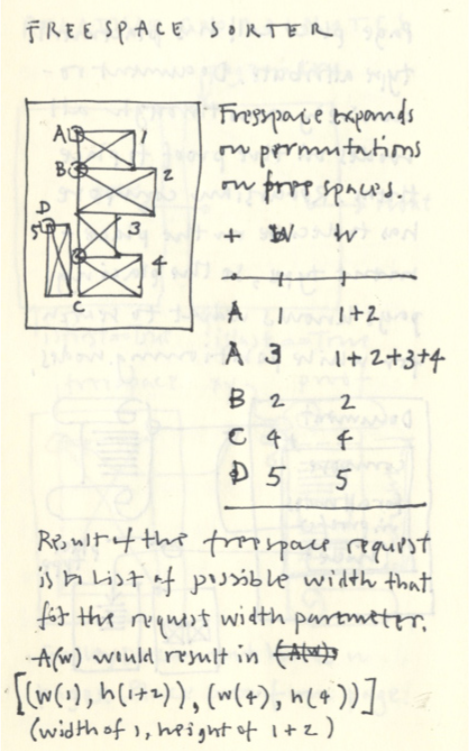 FREESPACE SORTER
A 1
B 2
D
5 3
4
C
Freespace expands
on permutations
on free spaces.
+ W W
A 1 1+2
A 3 1+2+3+4
B 2 2
C 4 4
D 5 5
Result of the freespace request
is a list of possible width that
fit the request width parameter.
A(w) would result in
[(w(1), h(1+2)), (w(4), h(4))]
(width of 1, height of 1+2)